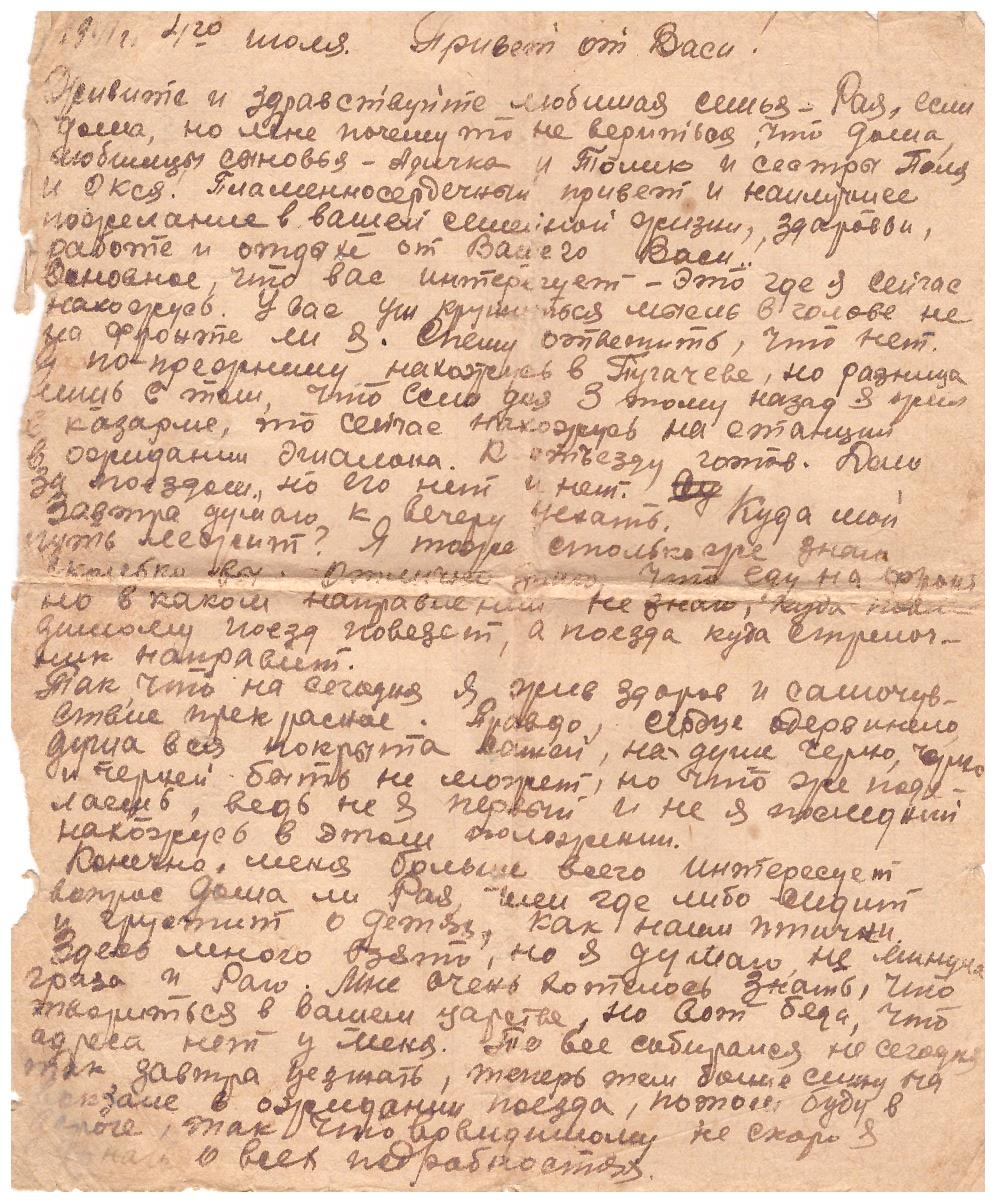 1941г. 4го июля. Привет от Васи!
Живите и здравствуйте любимая семья – Рая, если
дома, но мне почему то не вериться, что дома,
любимцы сыновья – Адичка и Толик и сестры Поля
и Окся. Пламенносердечный привет и наилучшее
пожелание в вашей семейной жизни, здоровьи,
работе и отдыхе от Вашего Васи.
Основное, что вас интересует – это где я сейчас
нахожусь. У вас уж кружиться мысль в голове не
на фронте ли я. Спешу ответить, что нет.
Я по-прежнему нахожусь в Пугачеве, но разница
лишь с тем, что если дня 3 тому назад я жил
в казарме, то сейчас нахожусь на станции
в ожидании эшалона. К отъезду готов. Дело
за поездом, но его нет и нет.
Завтра думаю к вечеру уехать. Куда мой
путь лежит? Я тоже столько же знаю
сколько вы. Отлично знаю, что еду на фронт
но в каком направлении не знаю, куда пови-
димому поезд повезет, а поезда куда стрелоч-
ник направит.
Так что на сегодня я жив здоров и самочув-
ствие прекрасное. Правдо, сердце одервинело,
душа вся покрыта сажей, на душе черно, черно
и черней быть не может, но что же поде-
лаешь, ведь не я первый и не я последний
нахожусь в этом положении.
Конечно, меня больше всего интересует
вопрос дома ли Рая, или где либо сидит
и грустит о детях, как наши птички.
Здесь много взято, но я думаю, не минула
гроза и Раю. Мне очень хотелось знать, что
твориться в вашем царстве, но вот беда, что
адреса нет у меня. То все собирался не сегодня
так завтра уезжать, теперь тем более сижу на
вокзале в ожидании поезда, потом буду в
дороге, так что повидимому не скоро я
узнаю о всех подробностях.